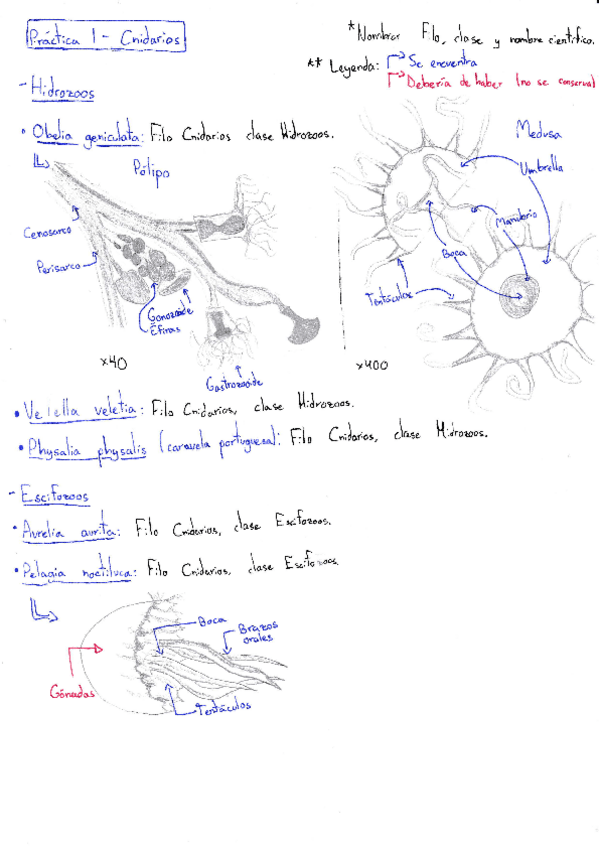 Práctica 1 - Cnidarios
*Nombrar Filo, clase y nombre científico.
** Leyenda: Se encuentra
Debería de haber (no se conserva)
- Hidrozoos
• Obelia geniculata: Filo Cnidarios clase Hidrozoos.
Pólipo
Medusa
Umbrella
Cenosarco
Manubrio
Perisarco
Boca
Gonozoide
Éfiras
Tentáculos
x40
x400
Gastrozoide
• Velella veletia: Filo Cnidarios, clase Hidrozoos.
• Physalia physalis (caravela portuguesa): Filo Cnidarios, clase Hidrozoos.
- Escifozoos
• Aurelia aurita: Filo Cnidarios, clase Escifozoos.
• Pelagia noctiluca: Filo Cnidarios, clase Escifozoos.
Boca
Brazos
orales
Gónadas
Tentáculos